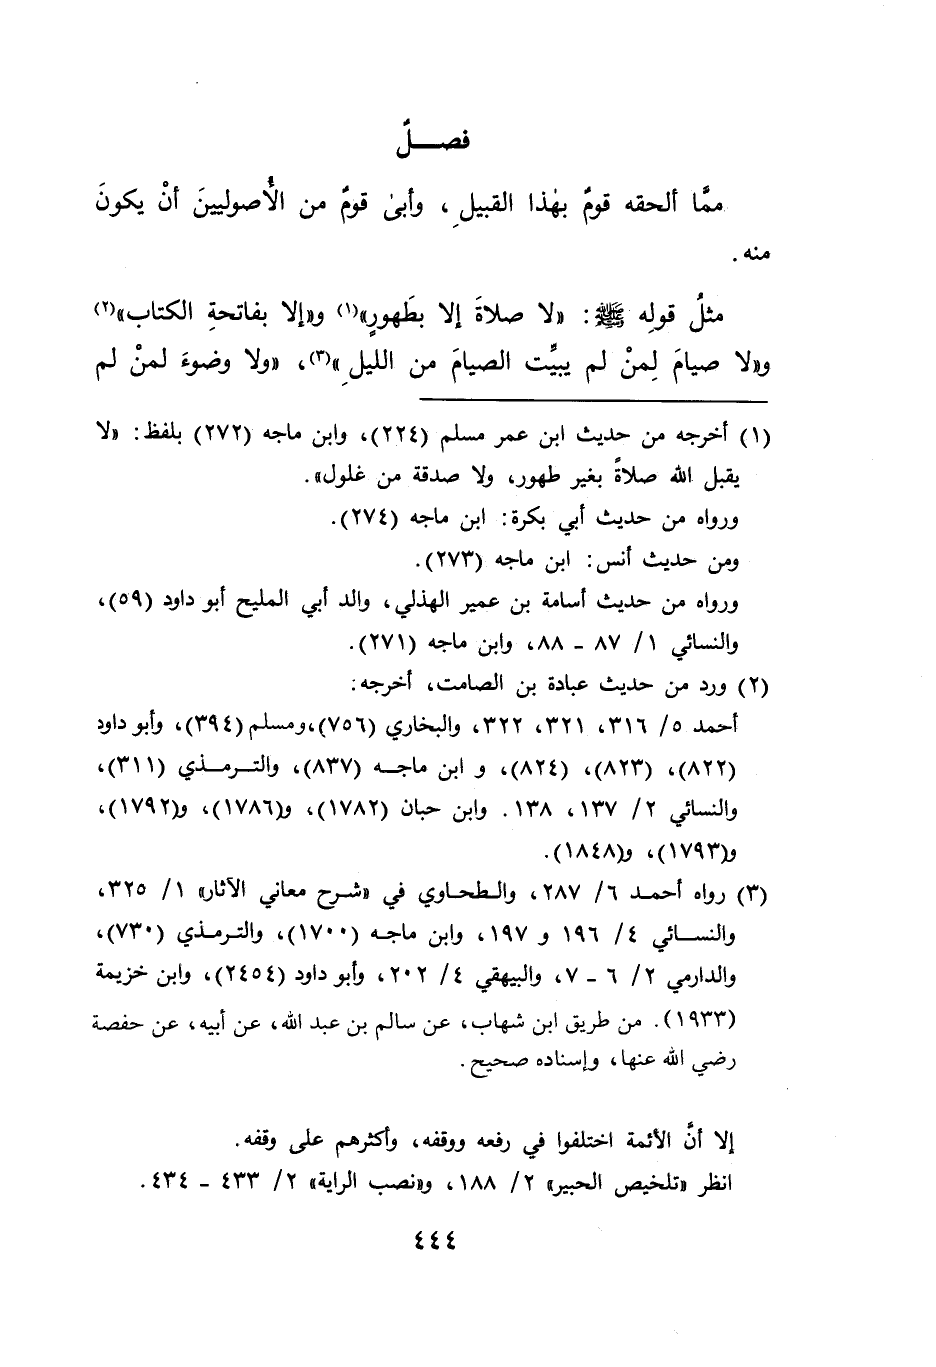 فصـــلٌ
ممَّا ألحقه قومٌ بهٰذا القبيلِ، وأبىٰ قومٌ من الأُصوليينَ أنْ يكونَ
منه.
مثلُ قولِه ﷺ: «لا صلاةَ إلا بطَهورٍ»(١) و«إلا بفاتحةِ الكتاب»(٢)
و«لا صيامَ لِمنْ لم يبيِّت الصيامَ من الليلِ»(٣)، «ولا وضوءَ لمنْ لم
(١) أخرجه من حديث ابن عمر مسلم (٢٢٤)، وابن ماجه (٢٧٢) بلفظ: «لا
يقبل الله صلاةً بغير طهور، ولا صدقة من غلول».
ورواه من حديث أبي بكرة: ابن ماجه (٢٧٤).
ومن حديث أنس: ابن ماجه (٢٧٣).
ورواه من حديث أسامة بن عمير الهذلي، والد أبي المليح أبو داود (٥٩)،
والنسائي ١/ ٨٧ - ٨٨، وابن ماجه (٢٧١).
(٢) ورد من حديث عبادة بن الصامت، أخرجه:
أحمد ٥/ ٣١٦، ٣٢١، ٣٢٢، والبخاري (٧٥٦)،ومسلم (٣٩٤)، وأبو داود
(٨٢٢)، (٨٢٣)، (٨٢٤)، و ابن ماجـه (٨٣٧)، والتـرمـذي (٣١١)،
والنسائي ٢/ ١٣٧، ١٣٨. وابن حبان (١٧٨٢)، و(١٧٨٦)، و(١٧٩٢)،
و(١٧٩٣)، و(١٨٤٨).
(٣) رواه أحمـد ٦/ ٢٨٧، والـطحـاوي في «شـرح معاني الآثار» ١/ ٣٢٥،
والنسـائي ٤/ ١٩٦ و ١٩٧، وابن ماجـه (١٧٠٠)، والتـرمـذي (٧٣٠)،
والدارمي ٢/ ٦ - ٧، والبيهقي ٤/ ٢٠٢، وأبو داود (٢٤٥٤)، وابن خزيمة
(١٩٣٣). من طريق ابن شهاب، عن سالم بن عبد الله، عن أبيه، عن حفصة
رضي الله عنها، وإسناده صحيح.
إلا أنَّ الأئمة اختلفوا في رفعه ووقفه، وأكثرهم على وقفه.
انظر «تلخيص الحبير» ٢/ ١٨٨، و«نصب الراية» ٢/ ٤٣٣ - ٤٣٤.
٤٤٤